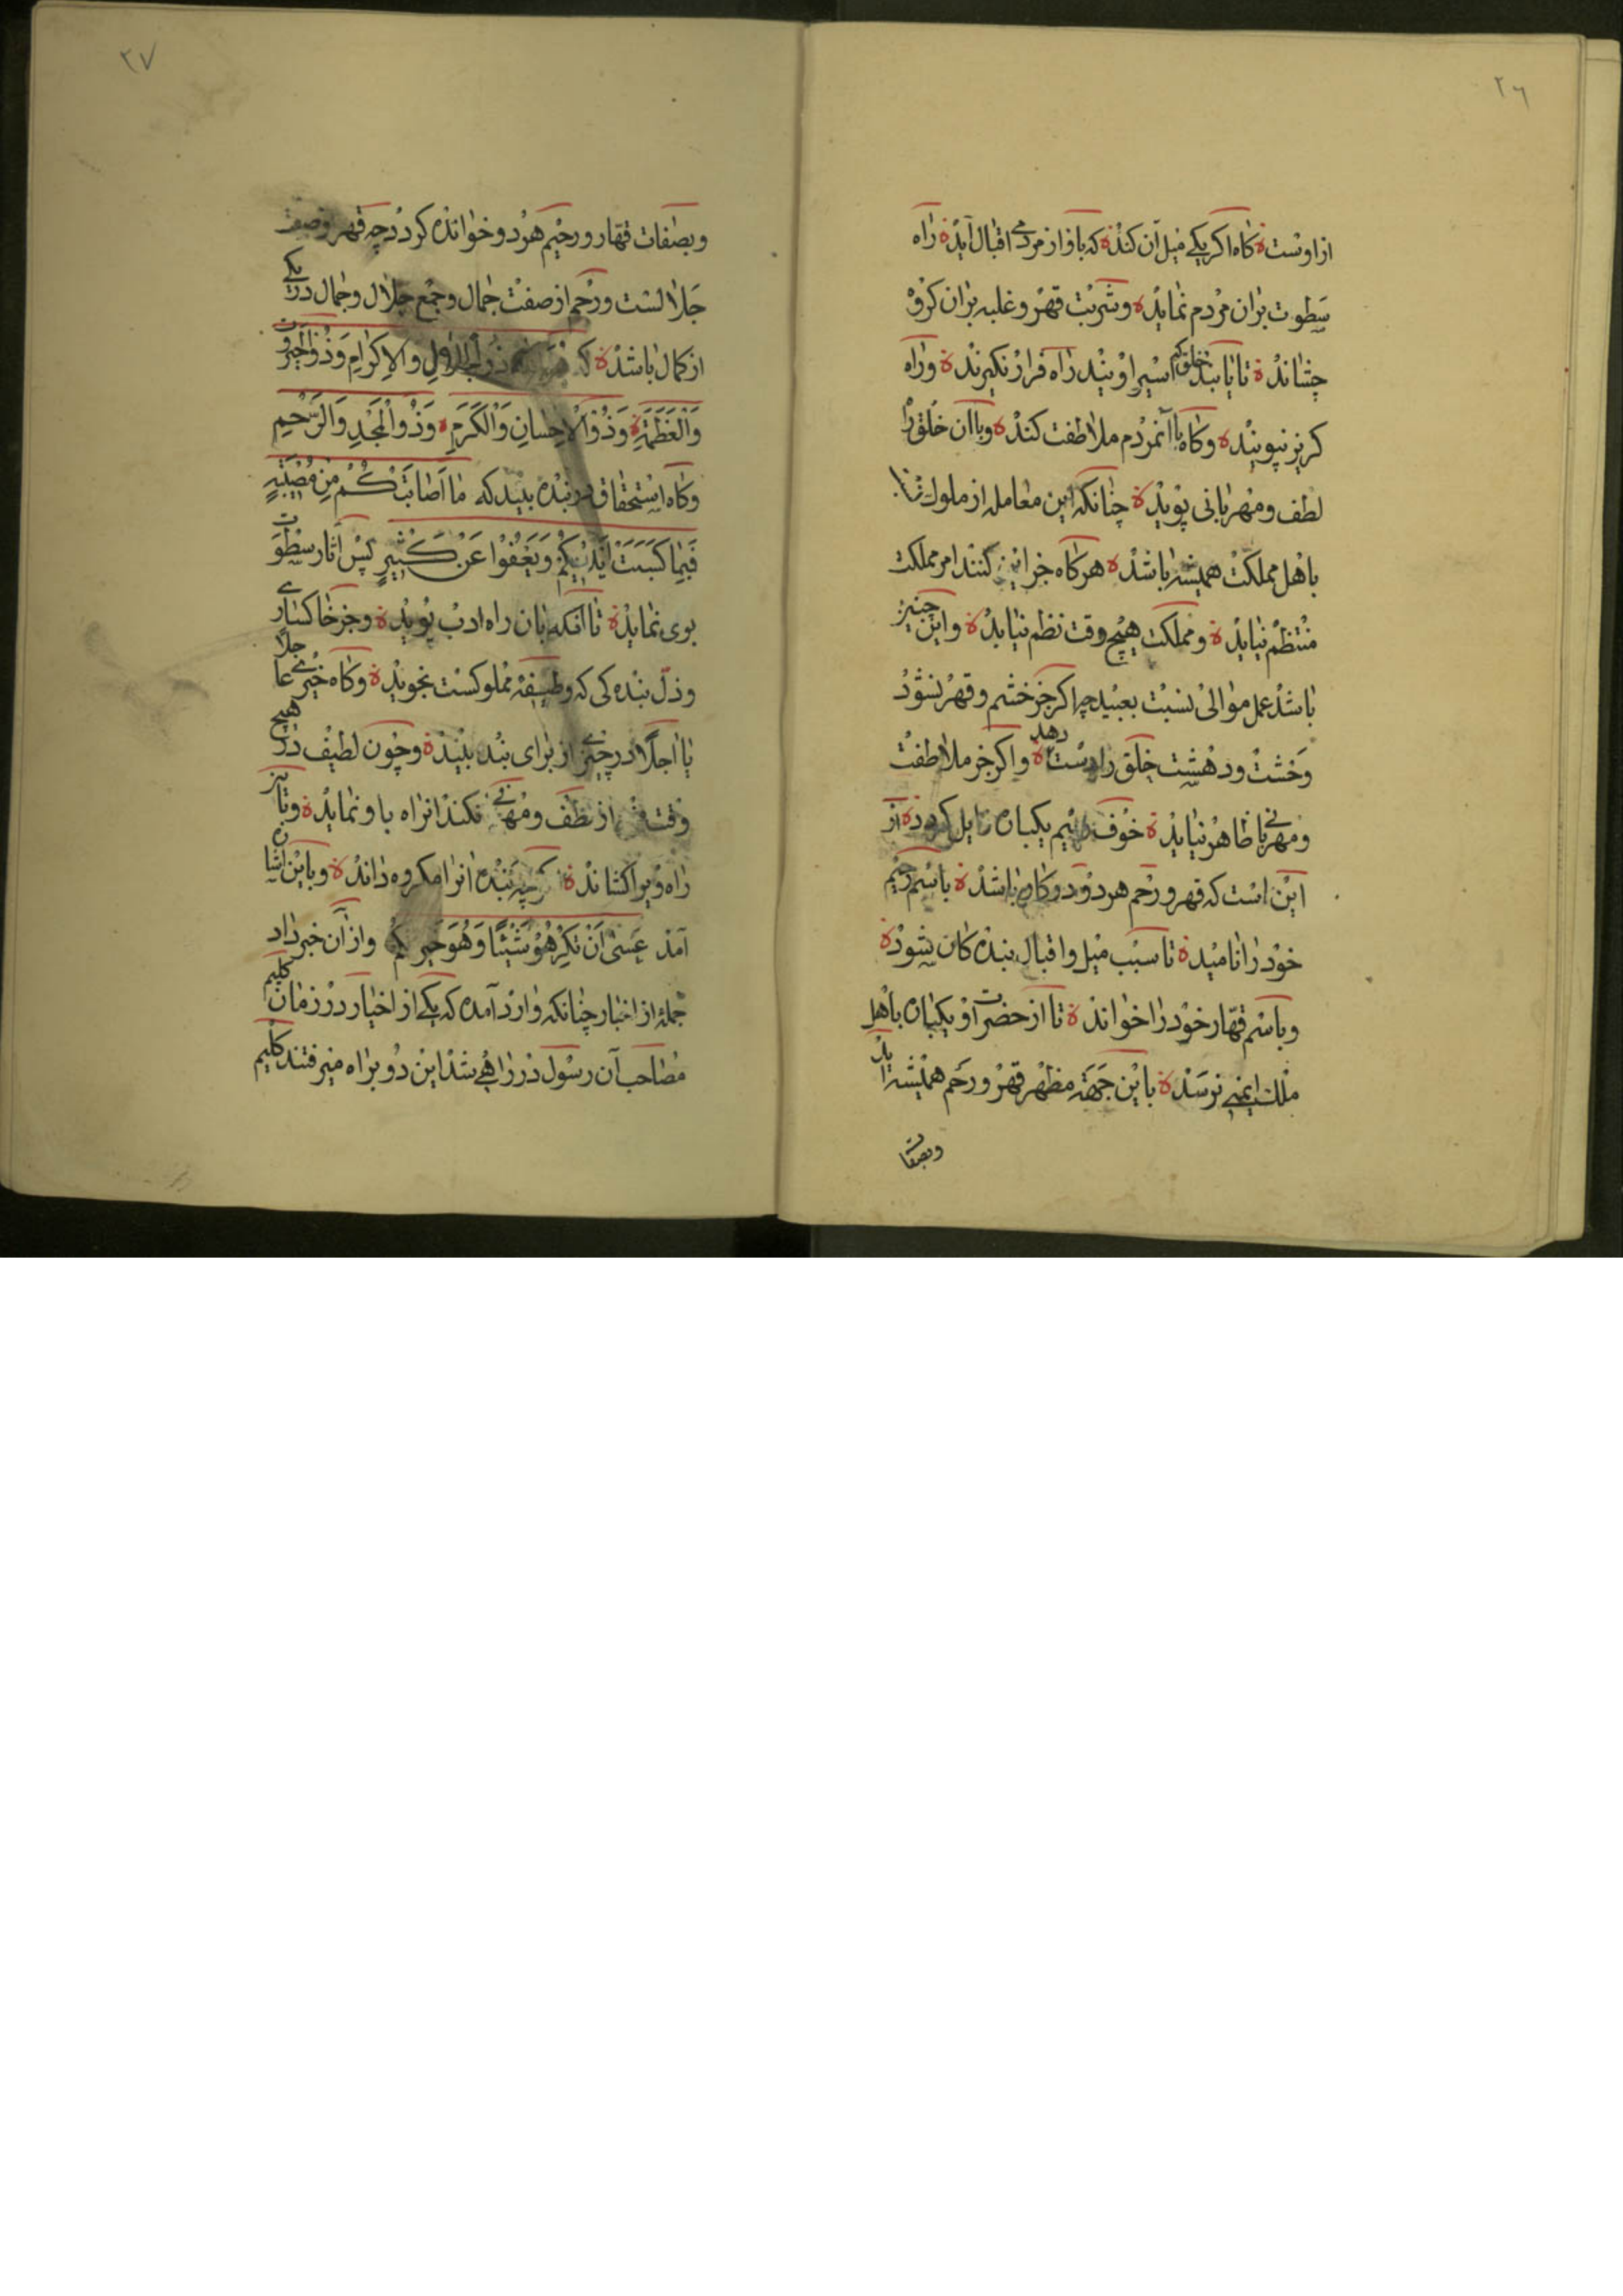 ٢٦
از اوست ة كاه اكر يكى ميل آن كند ة كه باو از مردمى اقبال آيد ة راه
سطوت بران مردم نمايد ة وشربت قهر و غلبه بران كروه
چشاند ة تا يابند خلق كه اسير اويند راه فرار نكيرند ة وراه
كريز نپويند ة وكاه با آنمردم ملاطفت كند ة وباان خلق را
لطف ومهربانى پويد ة چنانكه اين معامله از ملوك
با اهل مملكت هميشه باشد ة هركاه جز اين كنند امر مملكت
منتظم نيايد ة ومملكت هيچ وقت نظم نيابد ة واين چنين
باشد عمل موالى نسبت بعبيد چه اكر جز خشم وقهر نشود
وحشت ودهشت خلق را دست دهد ة واكر جز ملاطفت
ومهربانى ظاهر نيايد ة خوف وبيم يكباره زايل كردد ة از
اين است كه قهر ورحم هر دو در كار باشد ة باسم رحيم
خود را ناميد ة تا سبب ميل واقبال بندكان شود ة
وباسم قهار خود را خواند ة تا از حضرت او يكباره باهل
ملك ايمنى نرسد ة باين جهة مظهر قهر ورحم هميشه آيد
وبصفات
٢٧
وبصفات قهار ورحيم هر دو خوانده كردد چه قهر وصف
جلالست ورحم از صفت جمال وجمع جلال وجمال در يكى
از كمال باشد ة كه ذو الجلال والاكرام وذو الجبروت
والعظمة ة وذو الاحسان والكرم ة وذو المجد والرحيم
وكاه استحقاق در بنده بيند كه ما اصابتكم من مصيبة
فبما كسبت ايديكم ويعفوا عن كثير پس آثار سطوت
بوى نمايد ة تا آنكه بآن راه ادب پويد ة وجز خاكسارى
وذل بنده كى كه وظيفه مملوكست نجويد ة وكاه خيرى عاجلا
يا اجلا در چيزى از براى بنده بيند ة وچون لطيف در هيچ
وقت از لطف ومهربانى نكند انراه باو نمايد ة وتا نيز
راه ويرا كشاند ة كرچه بنده انرا مكروه داند ة وباين اشاره
آمد عسى ان تكرهو شيئا وهو خير لكم واز آن خبر داد
جمله از اخبار چنانكه وارد آمده كه يكى از اخيار در زمان كليم
مصاحب آن رسول در راهى شد اين دو براه ميرفتند كليم